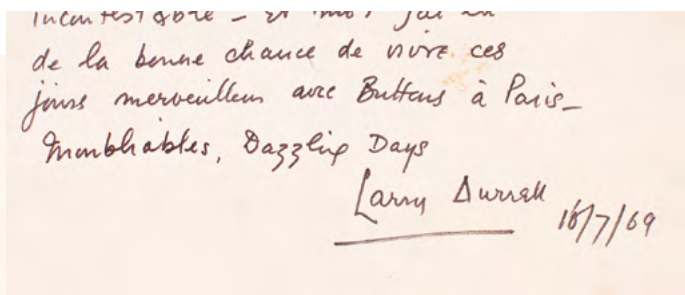 incontestable – Et moi j'ai eu
de la bonne chance de vivre ces
jours merveilleux avec Buttons à Paris –
Inoubliables, Dazzling Days
Larry Durrell
16/7/69